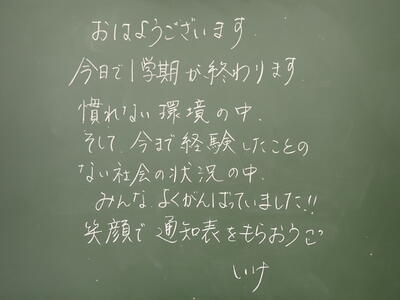 おはようございます
今日で1学期が終わります
慣れない環境の中、
そして、今まで経験したことの
ない社会の状況の中、
みんな よくがんばっていました!!
笑顔で通知表をもらおう
いけ